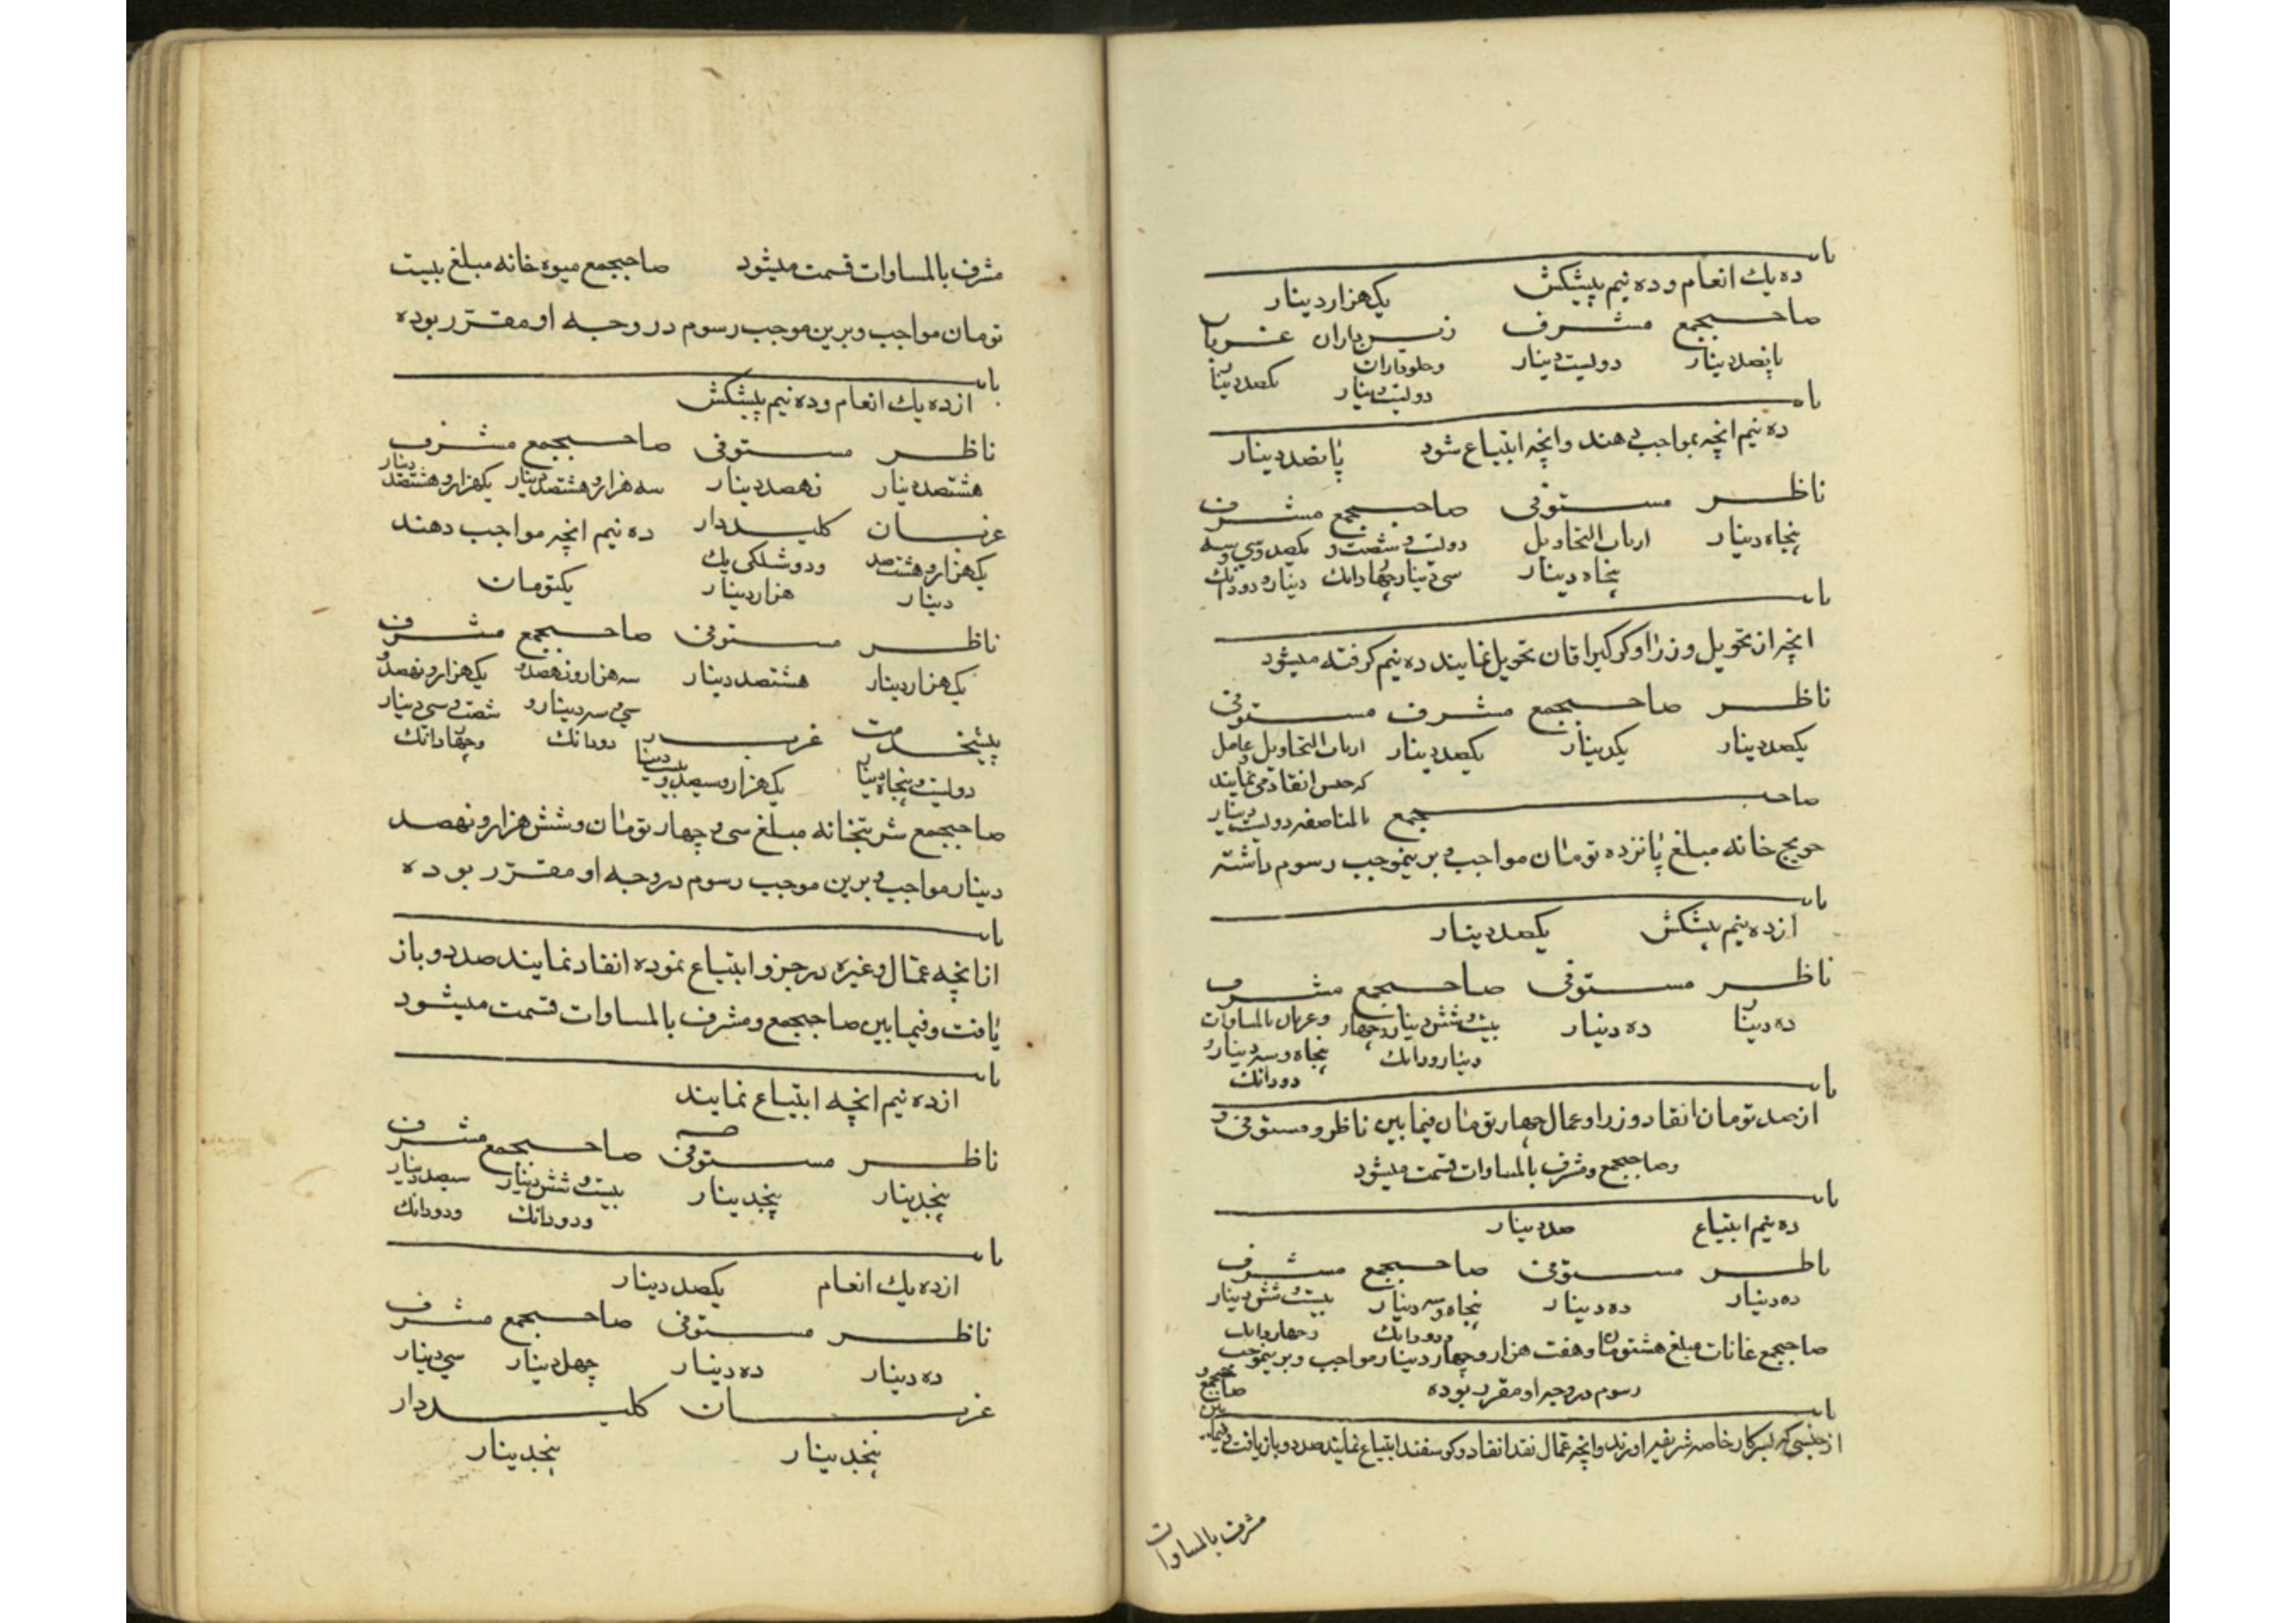 ده یك انعام و ده نیم پیشکش یکهزار دینار
صاحبجمع مشرف
پانصد دینار دویست دینار وحلوداران یکصد دینار
دویست دینار
ده نیم انچه بمواجب دهند وانچه ابتیاع شود پانصد دینار
ناظر مستوفی صاحبجمع مشرف
پنجاه دینار ارباب التحاویل دویست و شصت و یکصد وسی وسه
پنجاه دینار سی دینار چهاردانك دینار ودودانك
انچه از تحویل وزرا وکرکیراقان تحویل نمایند ده نیم کرفته میشود
ناظر صاحبجمع مشرف مستوفی
یکصد دینار یکدینار یکصد دینار ارباب التحاویل وعامل
که جنس انقاد می نمایند
صاحبجمع بالمناصفه دویست دینار
حویج خانه مبلغ پانزده تومان مواجب و برینموجب رسوم داشته
از ده نیم پیشکش یکصد دینار
ناظر مستوفی صاحبجمع مشرف
ده دینار ده دینار بیست وشش دینار وچهار بالمساوات
دینار ودانك پنجاه وسه دینار و
دودانك
از صد تومان انقاد وزرا وعمال چهار تومان فیمابین ناظر ومستوفی و
وصاحبجمع ومشرف بالمساوات قسمت میشود
ده نیم ابتیاع صد دینار
ناظر مستوفی صاحبجمع مشرف
ده دینار ده دینار پنجاه وسه دینار بیست وشش دینار
ودودانك وچهاردانك
صاحبجمع غانات مبلغ هشتتومان وهفت هزار وچهار دینار مواجب وبرینموجب
رسوم در وجه او مقرر بوده
از جنسی که بسرکار خاصه شریفه اورند وانچه عمال نقد انقاد وکوسفند ابتیاع نمایند صد دو باز یافت وفیما بین
صاحبجمع و
مشرف بالمساوات
مشرف بالمساوات قسمت میشود صاحبجمع میوه خانه مبلغ بیست
تومان مواجب وبرین موجب رسوم در وجه او مقرر بوده
از ده یك انعام وده نیم پیشکش
ناظر مستوفی صاحبجمع مشرف
هشتصد دینار نهصد دینار سه هزار وهشتصد دینار یکهزار وهشتصد دینار
عزبان کلیددار ده نیم انچه مواجب دهند
یکهزار وهشتصد ودوشلکی یك یکتومان
دینار هزار دینار
ناظر مستوفی صاحبجمع مشرف
یکهزار دینار هشتصد دینار سه هزار ونهصد و یکهزار ونهصد و
سی وسه دینار و شصت وسی دینار
پیشخدمت دودانك وچهاردانك
دویست وپنجاه دینار یکهزار وسیصد وبیست دینار
صاحبجمع شربتخانه مبلغ سی وچهار تومان وشش هزار ونهصد
دینار مواجب وبرین موجب رسوم در وجه او مقرر بوده
از انچه عمال وغیره در جزو ابتیاع نموده انفاد نمایند صد دو باز
یافت وفیمابین صاحبجمع ومشرف بالمساوات قسمت میشود
از ده نیم انچه ابتیاع نمایند
ناظر مستوفی صاحبجمع مشرف
پنجدینار پنجدینار بیست وشش دینار سیصد دینار
ودودانك ودودانك
از ده یك انعام یکصد دینار
ناظر مستوفی صاحبجمع مشرف
ده دینار ده دینار چهل دینار سی دینار
عزبان کلیددار
پنجدینار پنجدینار